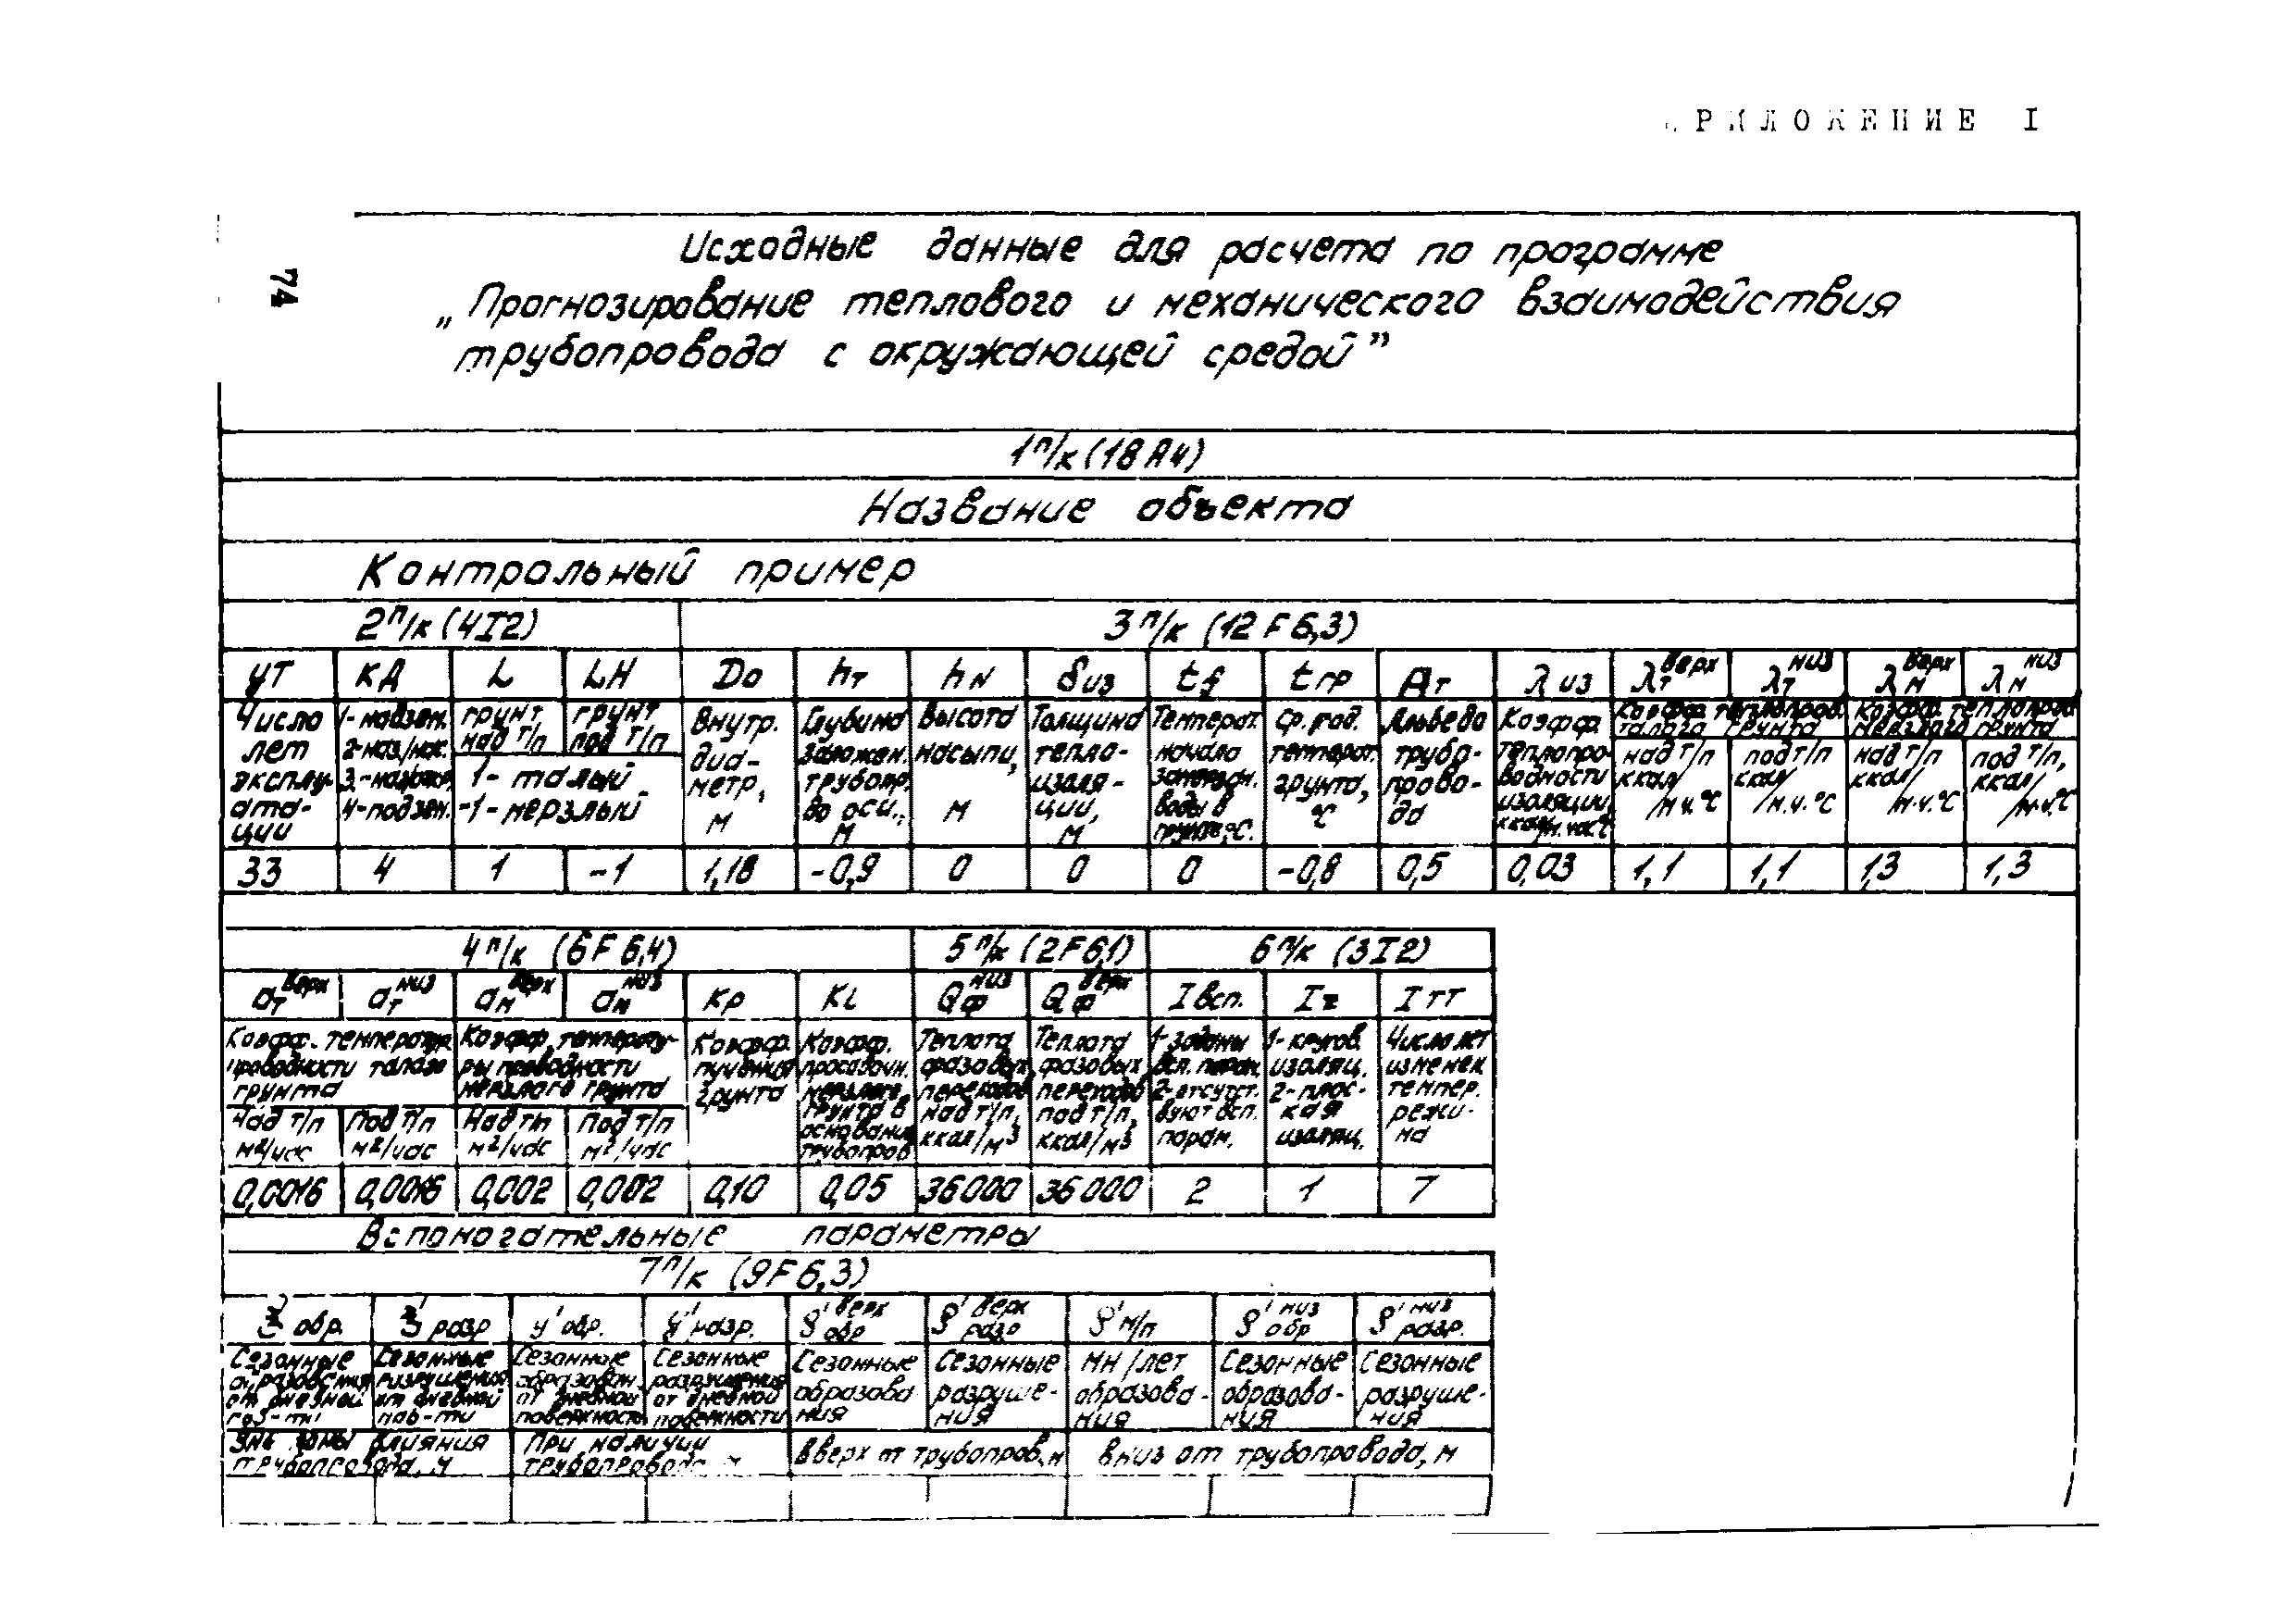 РИЛОЖЕНИЕ I
74
Исходные данные для расчета по программе
„Прогнозирование теплового и механического взаимодействия
трубопровода с окружающей средой”
1 п/к (18А4)
Название объекта
Контрольный пример
2 п/к (4I2) 3 п/к (12F6,3)
УТ КД L LH Do hт hN δиз tf tгр Ат λиз λт верх λт низ λм верх λм низ
Число лет эксплуатации
1-надзем. 2-наз/нас.
4-подзем.
грунт над т/п
грунт под т/п
1- талый
-1- мерзлый
Внутр. диа-метр, м
Глубина заложен. трубопр. до оси., м
Высота насыпи, м
Толщина тепло-изоля-ции, м
Температ. начала замерзан. воды в грунте, °С.
Ср. год. температ. грунта, °С
Альбедо трубо-прово-да
Коэфф. теплопро-водности изоляции, ккал/м.час°С
Коэфф. теплопров. талого грунта
Коэфф. теплопров мерзлого грунта
над т/п ккал/м.ч.°С
под т/п ккал/м.ч.°С
над т/п ккал/м.ч.°С
под т/п, ккал/м.ч.°С
33 4 1 -1 1,18 -0,9 0 0 0 -0,8 0,5 0,03 1,1 1,1 1,3 1,3
4 п/к (6F6,4) 5 п/к (2F6,1) 6 п/к (3I2)
ат верх ат низ ам верх ам низ Кр КL Qф низ Qф верх Iвсп. Iz IТТ
Коэфф. температуропроводности талого грунта
Коэфф. температуры проводности мерзлого грунта
Над т/п м2/час
Под т/п м2/час
Над т/п м2/час
Под т/п м2/час
Коэфф. пучения грунта
Коэфф. просадочн. мерзлого грунта в основании трубопров
Теплота фазовых переходов над т/п, ккал/м3
Теплота фазовых переходов под т/п, ккал/м3
1-заданы всп. парам. 2-отсутст-вуют всп. парам.
1-кругов. изоляц. 2-плос-кая изоляц.
Число лет изменен. темпер. режи-ма
0,0016 0,0016 0,002 0,002 0,10 0,05 36000 36000 2 1 7
Вспомогательные параметры
7 п/к (9F6,3)
ξ' обр. ξ' разр у' обр. у' разр. ξ' верх обр ξ' верх разр ξ' м/л ξ' низ обр ξ' низ разр.
Сезонные образования от дневной пов-ти
Сезонные разрушения от дневной пов-ти
Сезонные образован. от дневной поверхности
Сезонные разрушения от дневной поверхности
Сезонные образова ния
Сезонные разруше-ния
мн/лет образова-ния
Сезонные образова-ния
Сезонные разруше-ния
вне зоны влияния трубопровода, м
При наличии трубопровода м
вверх от трубопров., м
вниз от трубопровода, м